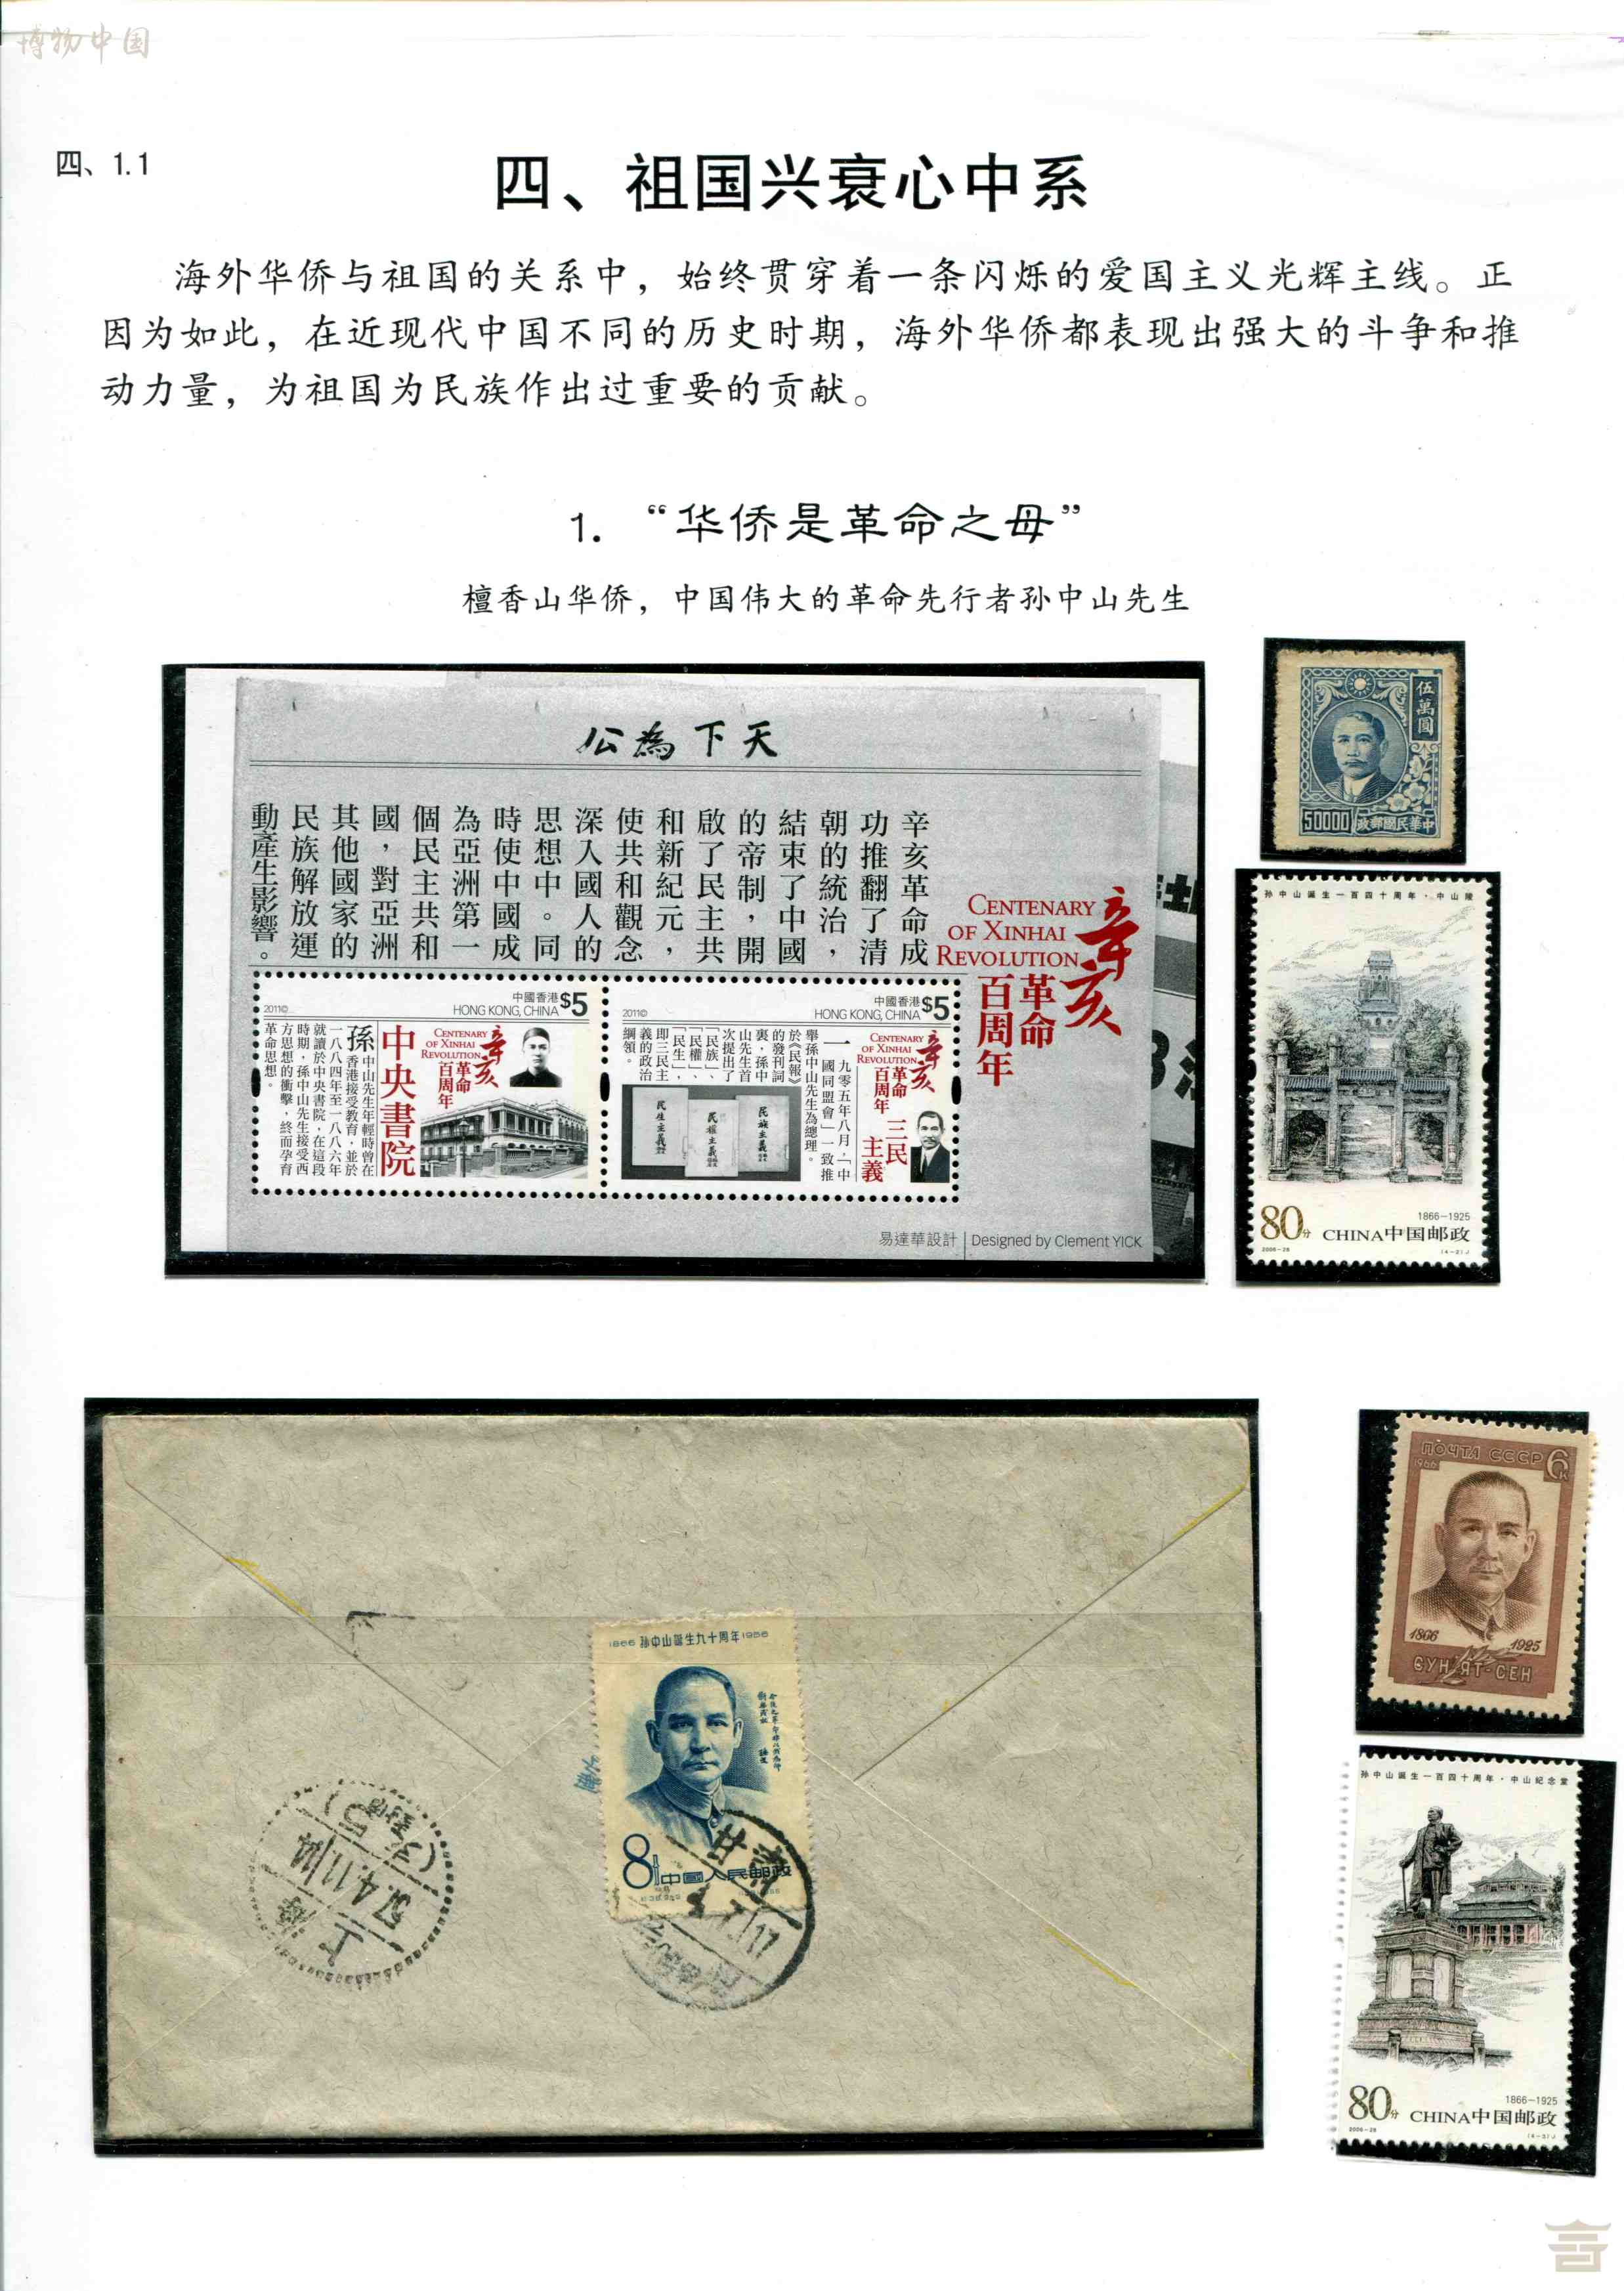 博物中国
四、1.1
四、祖国兴衰心中系
海外华侨与祖国的关系中，始终贯穿着一条闪烁的爱国主义光辉主线。正
因为如此，在近现代中国不同的历史时期，海外华侨都表现出强大的斗争和推
动力量，为祖国为民族作出过重要的贡献。
1. “华侨是革命之母”
檀香山华侨，中国伟大的革命先行者孙中山先生
公為下天
辛亥革命成
功推翻了清
朝的統治，
結束了中國
的帝制，開
啟了民主共
和新紀元，
使共和觀念
深入國人的
思想中。同
時使中國成
為亞洲第一
個民主共和
國，對亞洲
其他國家的
民族解放運
動產生影響。
辛亥
革命
百周年
CENTENARY
OF XINHAI
REVOLUTION
2011©
中國香港
HONG KONG, CHINA
$5
CENTENARY
OF XINHAI
REVOLUTION
辛亥
革命
百周年
中央書院
孫中山先生年輕時曾在
香港接受教育，並於
一八八四年至一八八六年
就讀於中央書院，在這段
時期，孫中山先生接受西
方思想的衝擊，終而孕育
革命思想。
2011©
中國香港
HONG KONG, CHINA
$5
CENTENARY
OF XINHAI
REVOLUTION
辛亥
革命
百周年
三民
主義
一九零五年八月，「中
國同盟會」一致推
舉孫中山先生為總理。
於《民報》
的發刊詞
裏，孫中
山先生首
次提出了
「民族」、
「民權」、
「民生」，
即三民主
義的政治
綱領。
民生主義
民權主義
民族主義
易達華設計 | Designed by Clement YICK
伍萬圓
50000
政郵國民華中
孙中山诞生一百四十周年·中山陵
1866－1925
80分 CHINA中国邮政
2006-28
(4-2)J
1866 孙中山诞生九十周年 1956
8分 中國人民邮政
上海
57.4.11
甘肃
ПОЧТА СССР
1966
6к
1866
1925
СУН ЯТ-СЕН
孙中山诞生一百四十周年·中山纪念堂
1866－1925
80分 CHINA中国邮政
2006-28
(4-3)J